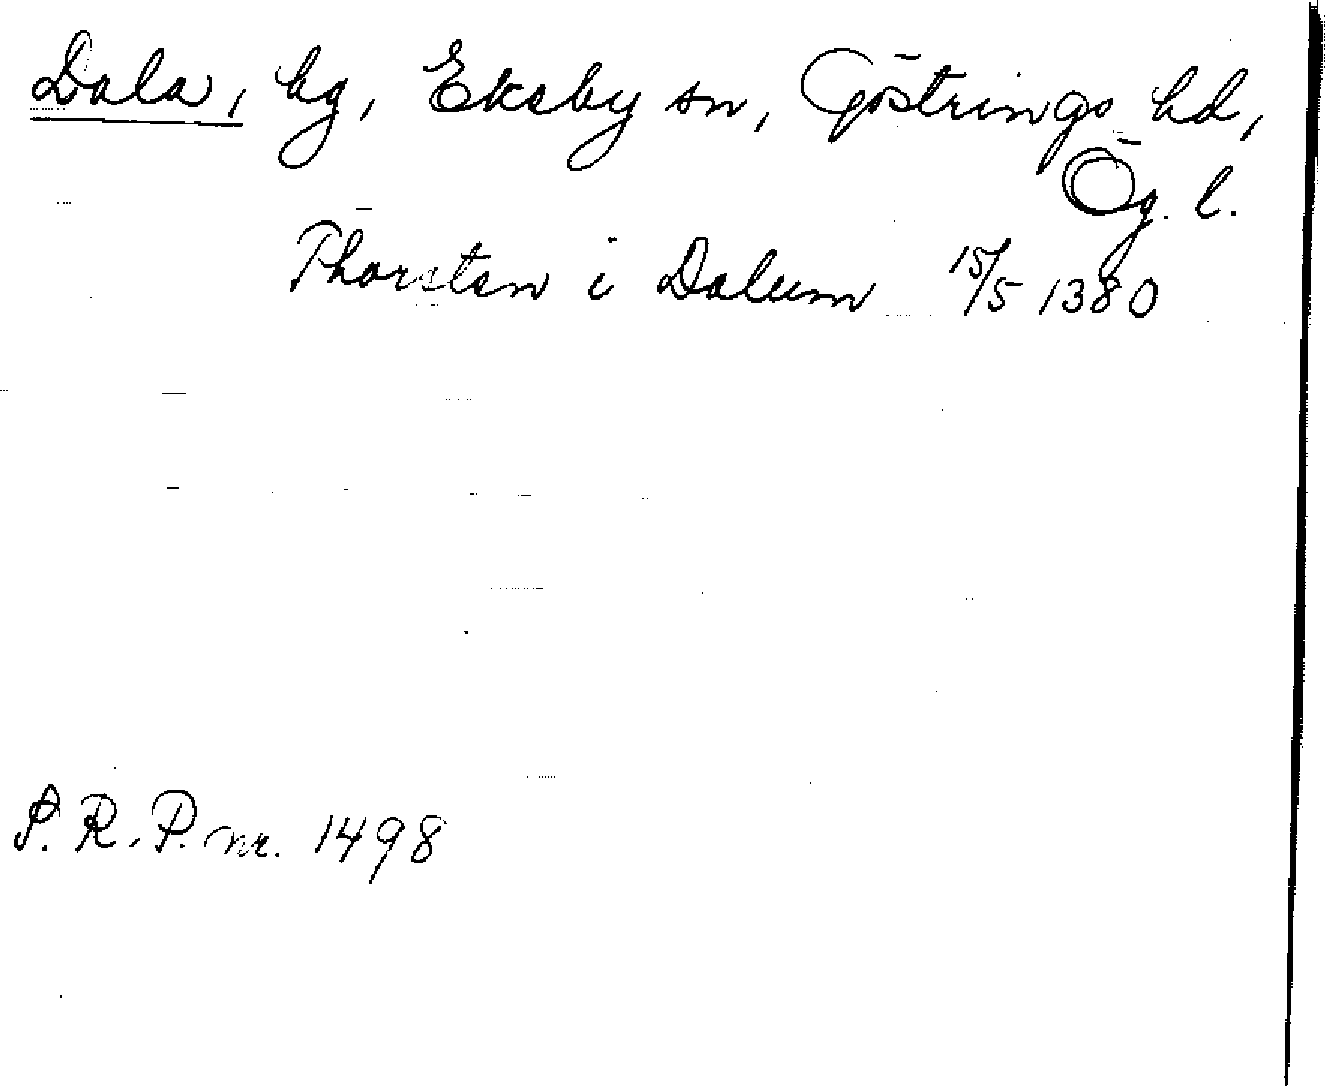 Dala, hg, Eksby sn, Göstrings hd,
Ög. l.
Thorsten i Dalum 15/5 1380
S. R. P. nr. 1498